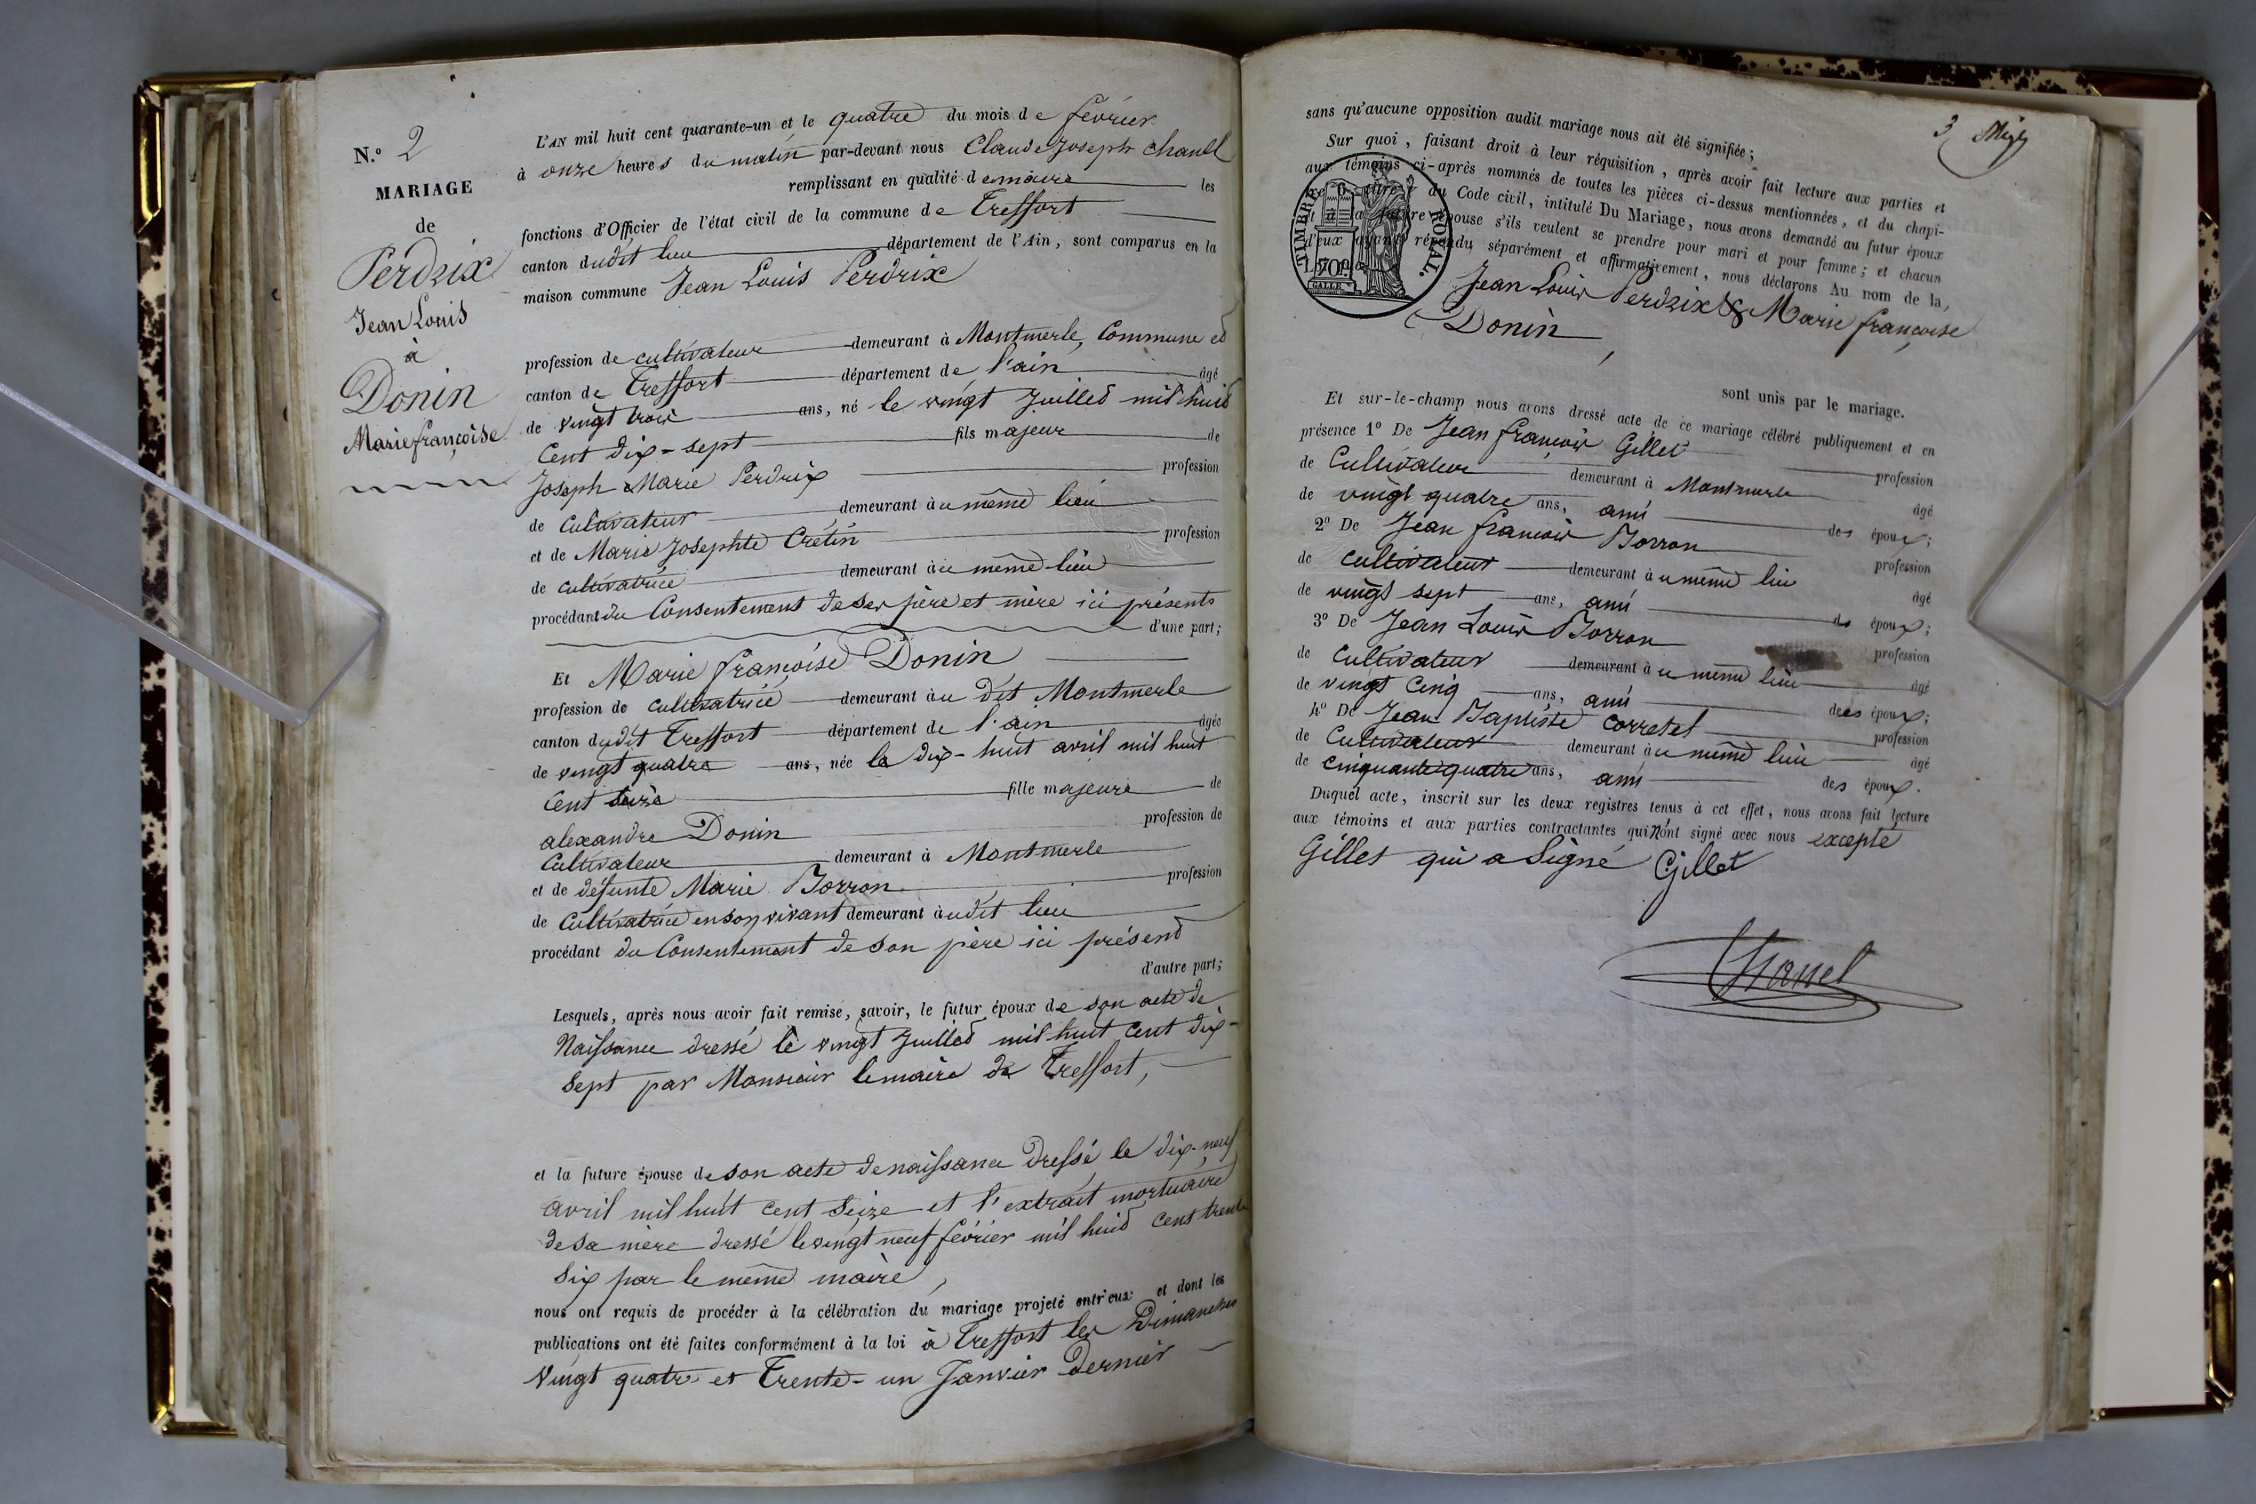 N.º 2
MARIAGE
de
Perdrix
Jean Louis
à
Donin
Marie françoise
L'AN mil huit cent quarante-un et le quatre du mois de février
à onze heures du matin par-devant nous Claude Joseph Chanel
remplissant en qualité de maire les
fonctions d'Officier de l'état civil de la commune de Treffort
canton dudit lieu département de l'Ain, sont comparus en la
maison commune Jean Louis Perdrix
profession de cultivateur demeurant à Montmerle, Commune et
canton de Treffort département de l'ain âgé
de vingt trois ans, né le vingt Juillet mil huit
Cent dix-sept fils majeur de
Joseph Marie Perdrix profession
de Cultivateur demeurant au même lieu
et de Marie Josephte Crétin profession
de cultivatrice demeurant au même lieu
procédant du Consentement de ses père et mère ici présents
d'une part;
Et Marie françoise Donin
profession de cultivatrice demeurant au dit Montmerle
canton dudit Treffort département de l'ain âgée
de vingt quatre ans, née le dix-huit avril mil huit
Cent seize fille majeure de
alexandre Donin profession de
Cultivateur demeurant à Montmerle
et de défunte Marie Borron profession
de Cultivatrice en son vivant demeurant audit lieu
procédant du Consentement de son père ici présent
d'autre part;
Lesquels, après nous avoir fait remise, savoir, le futur époux de son acte de
Naissance dressé le vingt Juillet mil huit Cent dix-
sept par Monsieur le maire de Treffort,
et la future épouse de son acte de naissance dressé le dix-neuf
avril mil huit cent Seize et l'extrait mortuaire
de sa mère dressé le vingt neuf février mil huit cent trente
six par le même maire,
nous ont requis de procéder à la célébration du mariage projeté entr'eux et dont les
publications ont été faites conformément à la loi à Treffort les Dimanches
Vingt quatre et Trente-un Janvier Dernier
3
sans qu'aucune opposition audit mariage nous ait été signifiée;
Sur quoi, faisant droit à leur réquisition, après avoir fait lecture aux parties et
aux témoins ci-après nommés de toutes les pièces ci-dessus mentionnées, et du chapi-
du Code civil, intitulé Du Mariage, nous avons demandé au futur époux
et à la future épouse s'ils veulent se prendre pour mari et pour femme; et chacun
d'eux ayant répondu séparément et affirmativement, nous déclarons Au nom de la
TIMBRE ROYAL.
Jean Louis Perdrix & Marie françoise
Donin
sont unis par le mariage.
Et sur-le-champ nous avons dressé acte de ce mariage célébré publiquement et en
présence 1º De Jean françois Gillet profession
de Cultivateur demeurant à Montmerle âgé
de vingt quatre ans, ami des époux;
2º De Jean françois Borron profession
de cultivateur demeurant au même lieu âgé
de vingt sept ans, ami des époux;
3º De Jean Louis Borron profession
de Cultivateur demeurant au même lieu âgé
de vingt Cinq ans, ami des époux;
4º De Jean Baptiste Corretel profession
de Cultivateur demeurant au même lieu âgé
de cinquante quatre ans, ami des époux.
Duquel acte, inscrit sur les deux registres tenus à cet effet, nous avons fait lecture
aux témoins et aux parties contractantes qui n'ont signé avec nous excepté
Gillet qui a Signé Gillet
Chanel